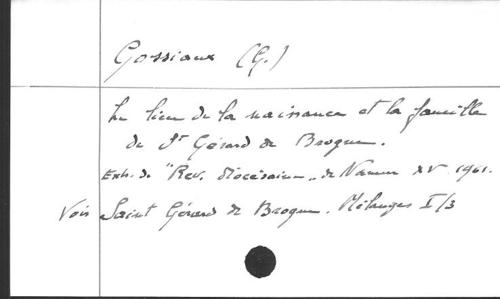 Gossiaux (G.)
Le lieu de la naissance et la famille
de St Gérard de Brogne.
Extr. de "Rev. diocésaine" de Namur XV 1961.
Voir Saint Gérard de Brogne. Mélanges I/3